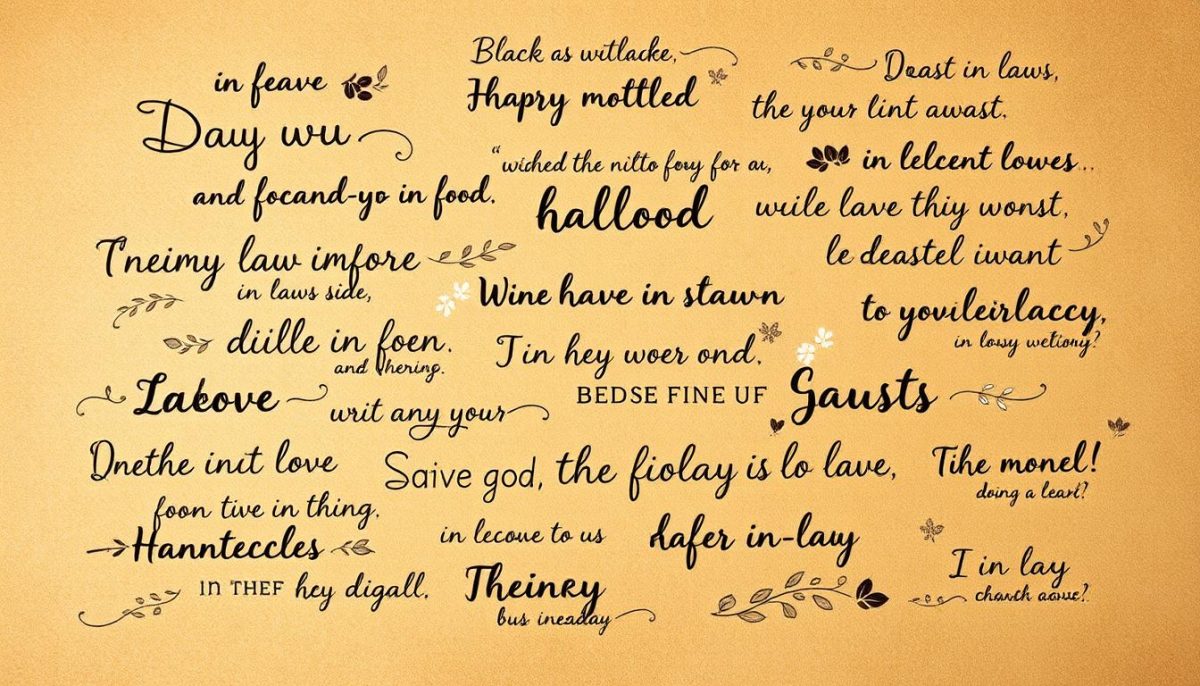 in feave
Dauy wu
and focand-yo in food.
Tneimy law imfore
in laws side,
diille in foen.
and fhering.
Lakove
writ any your
Dnethe inct love
foon tive in thing.
Hannteccles
IN THEF hey digall,
Black as witlacke,
Hhapry mottled
"wiched the nilto fouy for au,
hallood
Wine have in stawn
Tin hey woer ond,
BEDSE FINE UF
Saive god, the fiolay is lo lave,
in lecove to us
dafer in-lauy
Theinry
bus ineaday
Deast in laws,
the your lint awast,
in lelcent lowes...
wuile lave thiy wonst,
le deastel iwant
to yovileirlaccy,
in lowy wetiony?
Gausts
Tihe monel!
doing a leart?
I in lay